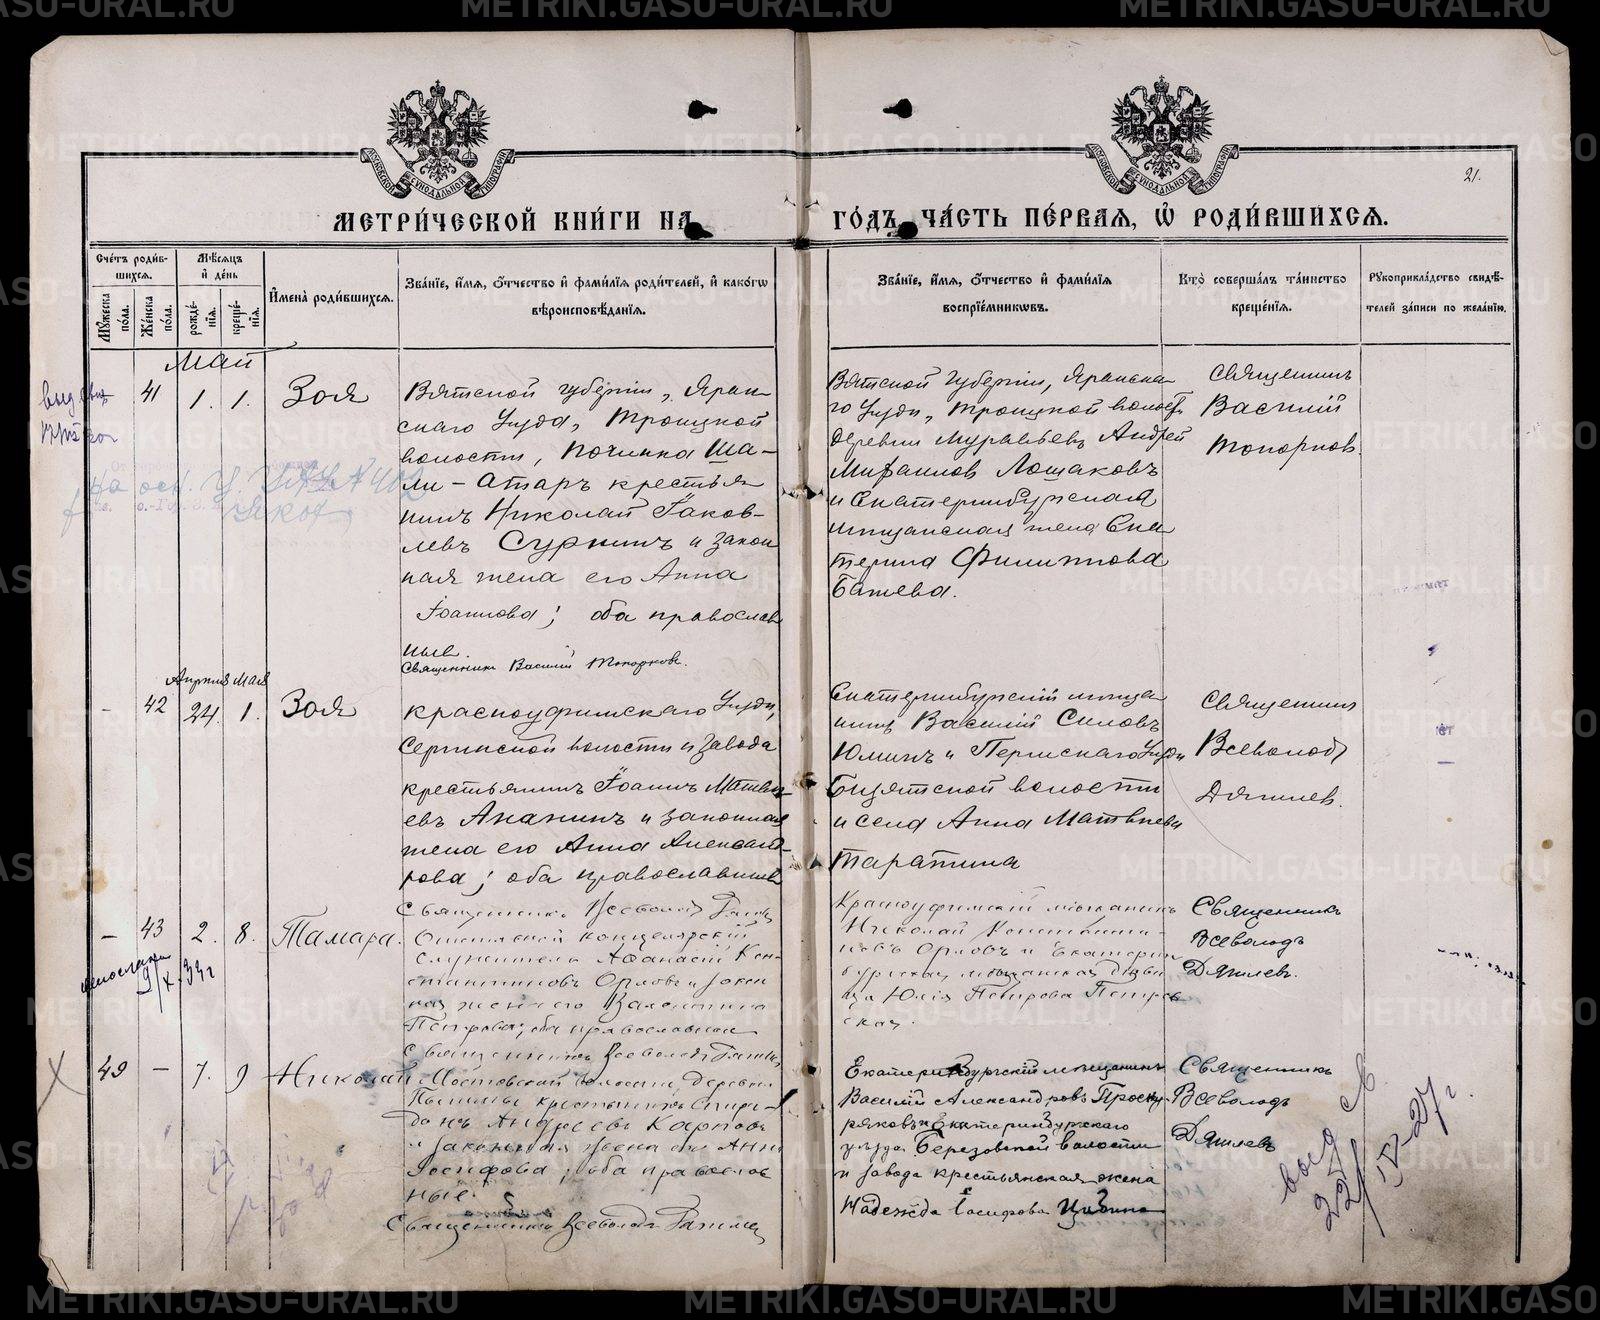 21.
МЕТРИ́ЧЕСКОЙ КНИ́ГИ НА
ГО́ДЪ, ЧА́СТЬ ПЕ́РВАЯ, Ѡ҆ РОДИ́ВШИХСѦ.
Сче́тъ роди́в-
шихсѧ.
Мꙋ́жеска по́ла.
Же́нска по́ла.
Мѣ́сѧцъ
и҆ де́нь
рожде́-
нїѧ.
креще́-
нїѧ.
И҆мена̀ роди́вшихсѧ.
Зва́нїе, и҆́мѧ, ѻ҆́тчество и҆ фами́лїѧ роди́телей, и҆ како́гѡ
вѣроисповѣ́данїѧ.
Зва́нїе, и҆́мѧ, ѻ҆́тчество и҆ фами́лїѧ
воспрїе́мникѡвъ.
Кто̀ соверша́лъ та́инство
креще́нїѧ.
Рꙋкоприкла́дство свидѣ́-
телей за́писи по жела́нїю.
Май
41
1. 1.
Зоя
Вятской губерніи, Яран-
скаго Уѣзда, Троицкой
волости, починка Ша-
ли-Атаръ крестья
нинъ Николай Іаков-
левъ Суркинъ и закон
ная жена его Анна
Іоаннова; оба православ
ные.
Священникъ Василій Топорковъ.
Вятской губерніи, Яранска-
го Уѣзда, Троицкой волости
деревни Муравьевъ Андрей
Михаиловъ Лошаковъ
и Екатеринбургская
мѣщанская жена Ека
терина Филиппова
Батева.
Священникъ
Василій
Топорковъ.
Апрѣля Мая
-
42
24. 1.
Зоя
Красноуфимскаго Уѣзда,
Сергинской волости и завода
крестьянинъ Іоаннъ Матвѣ-
евъ Ананинъ и законная
жена его Анна Александ-
рова; оба православные
Священникъ Всеволодъ
Екатеринбургскій мѣща
нинъ Василій Силовъ
Юминъ и Пермскаго Уѣзда
волости
и села Анна Матвѣева
Таратина
Священникъ
Всеволодъ
Дягилевъ.
-
43
2. 8.
Тамара.
канцелярскій
служитель Афанасій Кон-
стантиновъ Орловъ и закон
ная жена его Валентина
Петрова; оба православные
Священникъ Всеволодъ
Красноуфимскій мѣщанинъ
Николай Константи-
новъ Орловъ и Екатерин
бургская мѣщанская дѣви
ца Юлія Петрова Петров
ская.
Священникъ
Всеволодъ
Дягилевъ.
9/X-33 г
49
-
7. 9
Николай
Мостовской волости, деревни
крестьянинъ Спири-
донъ Андреевъ Карповъ
и законная жена его Анна
Іосифова; оба православ
ные.
Священникъ Всеволодъ
Екатеринбургскій мѣщанинъ
Василій Александровъ Проску-
ряковъ и Екатеринбургскаго
уѣзда Березовской волости
и завода крестьянская жена
Надежда Іосифова
Священникъ
Всеволодъ
Дягилевъ
выд св
22/IV-27 г.
METRIKI.GASO-URAL.RU